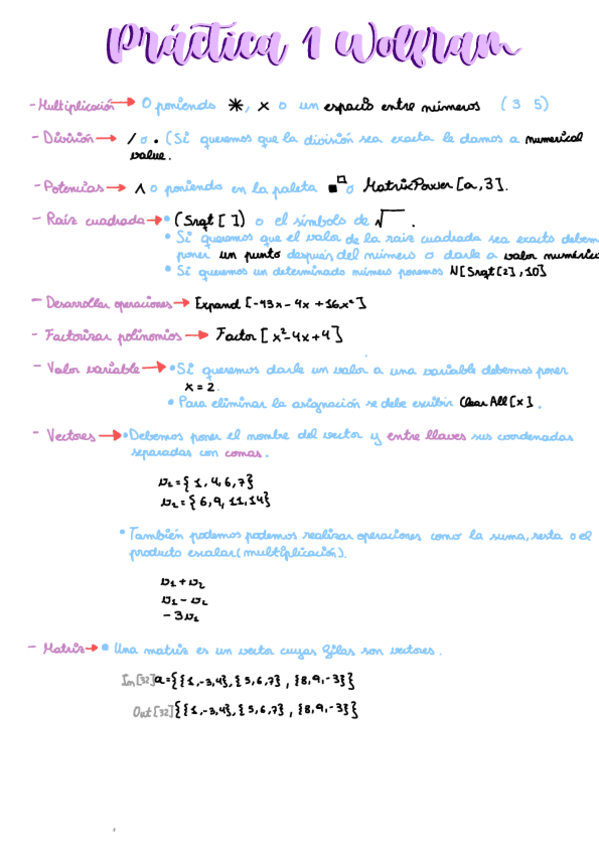 Práctica 1 Wolfram
- Multiplicación → O poniendo *, x o un espacio entre números (3 5)
- División → / o . (Si queremos que la división sea exacta le damos a numerical
value.
- Potencias → ^ o poniendo en la paleta ■□ o MatrixPower[a,3].
- Raíz cuadrada → • (Srqt[ ]) o el símbolo de √ .
• Si queremos que el valor de la raiz cuadrada sea exacto debem
poner un punto después del número o darle a valor numéric
• Si queremos un determinado número ponemos N[Srqt[2],10]
- Desarrollar operaciones → Expand [-43x-4x+16x²]
- Factorizar polinomios → Factor [x²-4x+4]
- Valor variable → • Si queremos darle un valor a una variable debemos poner
x = 2.
• Para eliminar la asignación se debe escribir Clear All[x].
- Vectores → • Debemos poner el nombre del vector y entre llaves sus coordenadas
separadas con comas.
v₁={1,4,6,7}
v₂={6,9,11,14}
• También podemos podemos realizar operaciones como la suma, resta o el
producto escalar (multiplicación).
v₁+v₂
v₁-v₂
-3v₁
- Matriz → • Una matriz es un vector cuyas filas son vectores.
In[32] a={{1,-3,4},{5,6,7},{8,9,-3}}
Out[32] {{1,-3,4},{5,6,7},{8,9,-3}}